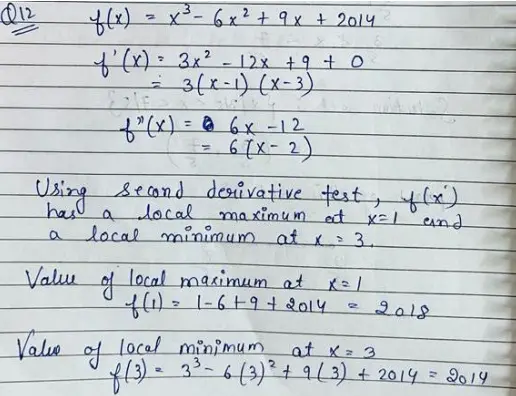 Q12 f(x) = x³ - 6x² + 9x + 2014
f'(x) = 3x² - 12x + 9 + 0
= 3(x-1) (x-3)
f"(x) = 6x - 12
= 6(x - 2)
Using second derivative test, f(x)
has a local maximum at x=1 and
a local minimum at x = 3.
Value of local maximum at x=1
f(1) = 1-6+9+2014 = 2018
Value of local minimum at x = 3
f(3) = 3³ - 6(3)² + 9(3) + 2014 = 2014